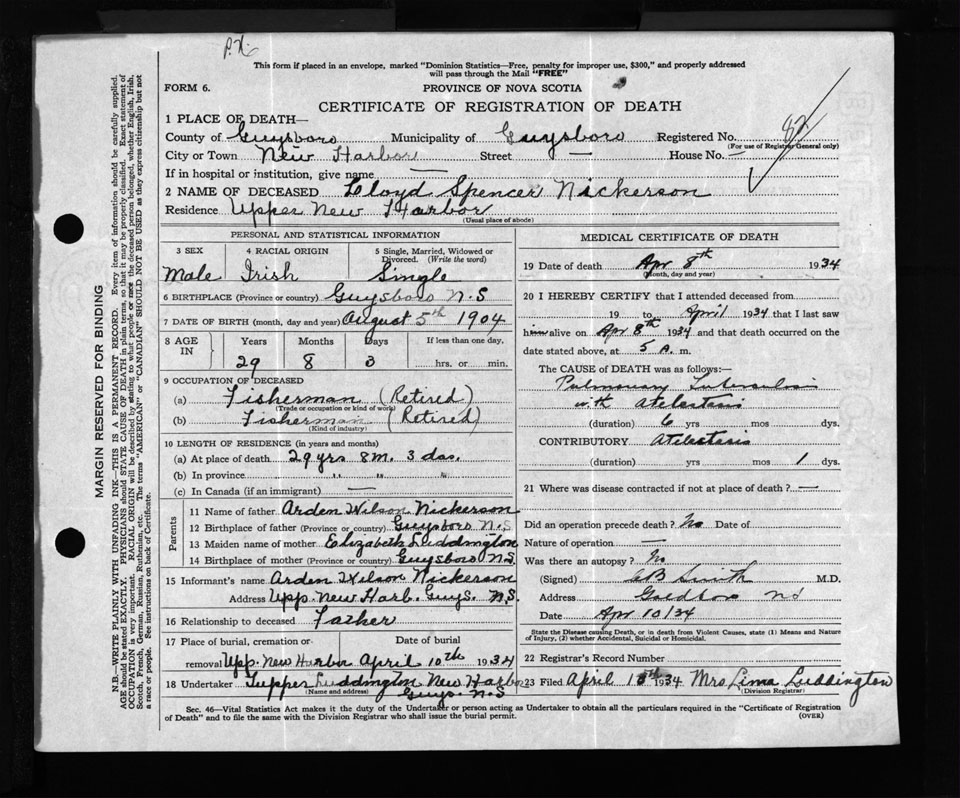 P.N.
This form if placed in an envelope, marked "Dominion Statistics—Free, penalty for improper use, $300," and properly addressed
will pass through the Mail "FREE"
FORM 6.
PROVINCE OF NOVA SCOTIA
CERTIFICATE OF REGISTRATION OF DEATH
1 PLACE OF DEATH—
County of Guysboro Municipality of Guysboro Registered No. 82
(For use of Registrar General only)
City or Town New Harbor Street — House No. —
If in hospital or institution, give name —
2 NAME OF DECEASED Lloyd Spencer Nickerson
Residence Upper New Harbor
(Usual place of abode)
PERSONAL AND STATISTICAL INFORMATION
3 SEX 4 RACIAL ORIGIN 5 Single, Married, Widowed or
Divorced. (Write the word)
Male Irish Single
6 BIRTHPLACE (Province or country) Guysboro N.S
7 DATE OF BIRTH (month, day and year) August 5th 1904
8 AGE IN Years Months Days If less than one day,
29 8 3 hrs. or min.
9 OCCUPATION OF DECEASED
(a) Fisherman (Retired)
(Trade or occupation or kind of work)
(b) Fisherman (Retired)
(Kind of industry)
10 LENGTH OF RESIDENCE (in years and months)
(a) At place of death 29 yrs 8 m. 3 das.
(b) In province " " "
(c) In Canada (if an immigrant) —
Parents
11 Name of father Arden Wilson Nickerson
12 Birthplace of father (Province or country) Guysboro N.S
13 Maiden name of mother Elizabeth Luddington
14 Birthplace of mother (Province or country) Guysboro N.S.
15 Informant's name Arden Wilson Nickerson
Address Upp. New Harb. Guys. N.S.
16 Relationship to deceased Father
17 Place of burial, cremation or Date of burial
removal Upp. New Harbor April 10th 1934
18 Undertaker Tupper Luddington New Harbor
(Name and address) Guys. N.S
MEDICAL CERTIFICATE OF DEATH
19 Date of death Apr 8th 1934
(Month, day and year)
20 I HEREBY CERTIFY that I attended deceased from
19 to April 1934 that I last saw
him alive on Apr 8th 1934 and that death occurred on the
date stated above, at 5 A. m.
The CAUSE OF DEATH was as follows:—
Pulmonary Tuberculosis
with Atelectasis
(duration) 6 yrs mos dys.
CONTRIBUTORY Atelectasis
(duration) yrs mos 1 dys.
21 Where was disease contracted if not at place of death? —
Did an operation precede death? No Date of
Nature of operation —
Was there an autopsy? No
(Signed) AB Smith M.D.
Address Goldboro NS
Date Apr 10/34
State the Disease causing Death, or in death from Violent Causes, state (1) Means and Nature
of Injury, (2) whether Accidental, Suicidal or Homicidal.
22 Registrar's Record Number
23 Filed April 1934 Mrs Lima Luddington
(Division Registrar)
Sec. 46—Vital Statistics Act makes it the duty of the Undertaker or person acting as Undertaker to obtain all the particulars required in the "Certificate of Registration
of Death" and to file the same with the Division Registrar who shall issue the burial permit. (OVER)
MARGIN RESERVED FOR BINDING
N.B.—WRITE PLAINLY WITH UNFADING INK—THIS IS A PERMANENT RECORD. Every item of information should be carefully supplied.
AGE should be stated EXACTLY. PHYSICIANS should STATE CAUSE OF DEATH in plain terms, so that it may be properly classified. Exact statement of
OCCUPATION is very important. RACIAL ORIGIN will be described by stating to what people or race the deceased person belonged, whether English, Irish,
Scotch, French, German, Russian, Ruthenian, etc. The terms "AMERICAN" or "CANADIAN" SHOULD NOT BE USED as they express citizenship but not
a race or people. See instructions on back of Certificate.